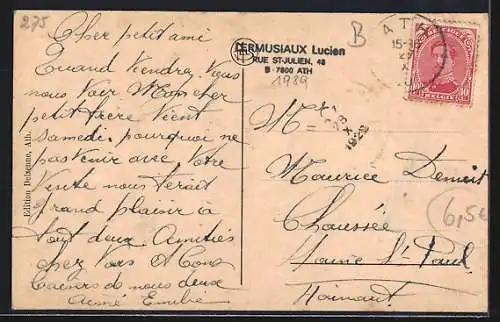 275
Cher petit ami
Quand viendrez Vous
nous Voir Mon cher
petit frère Vient
samedi pourquoi ne
pas venir avec Votre
Vente nous ferait
grand plaisir à
tout deux Amitiés
chez Vous et Bons
Baisers de nous deux
Aimé Emilie
Edition Delegenne, Ath.
DERMUSIAUX Lucien
RUE ST-JULIEN, 48
B-7800 ATH
1989
B
ATH
15-16
X
BELGIQUE
10 10
BELGIË
M
Maurice
Chaussée
St Paul
Hainaut
6,5€